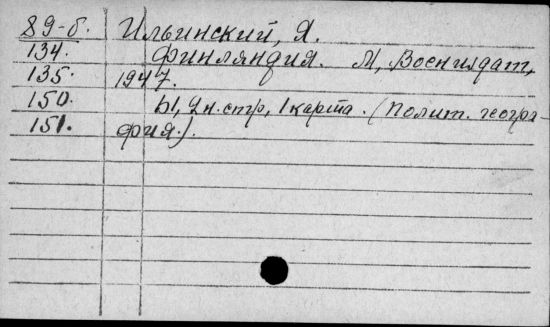 89-б. Ильинский, Я.
134. Финляндия. М, Воениздат,
135. 1947.
150. 2 н. стр, 1 карта. (Полит. геогра-
151. фия.).